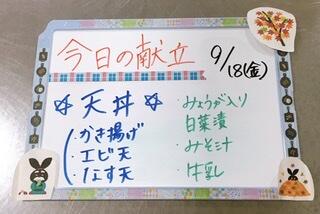 今日の献立
9/18(金)
☆天丼☆
・かき揚げ
・エビ天
・なす天
・みょうが入り
白菜漬
・みそ汁
・牛乳